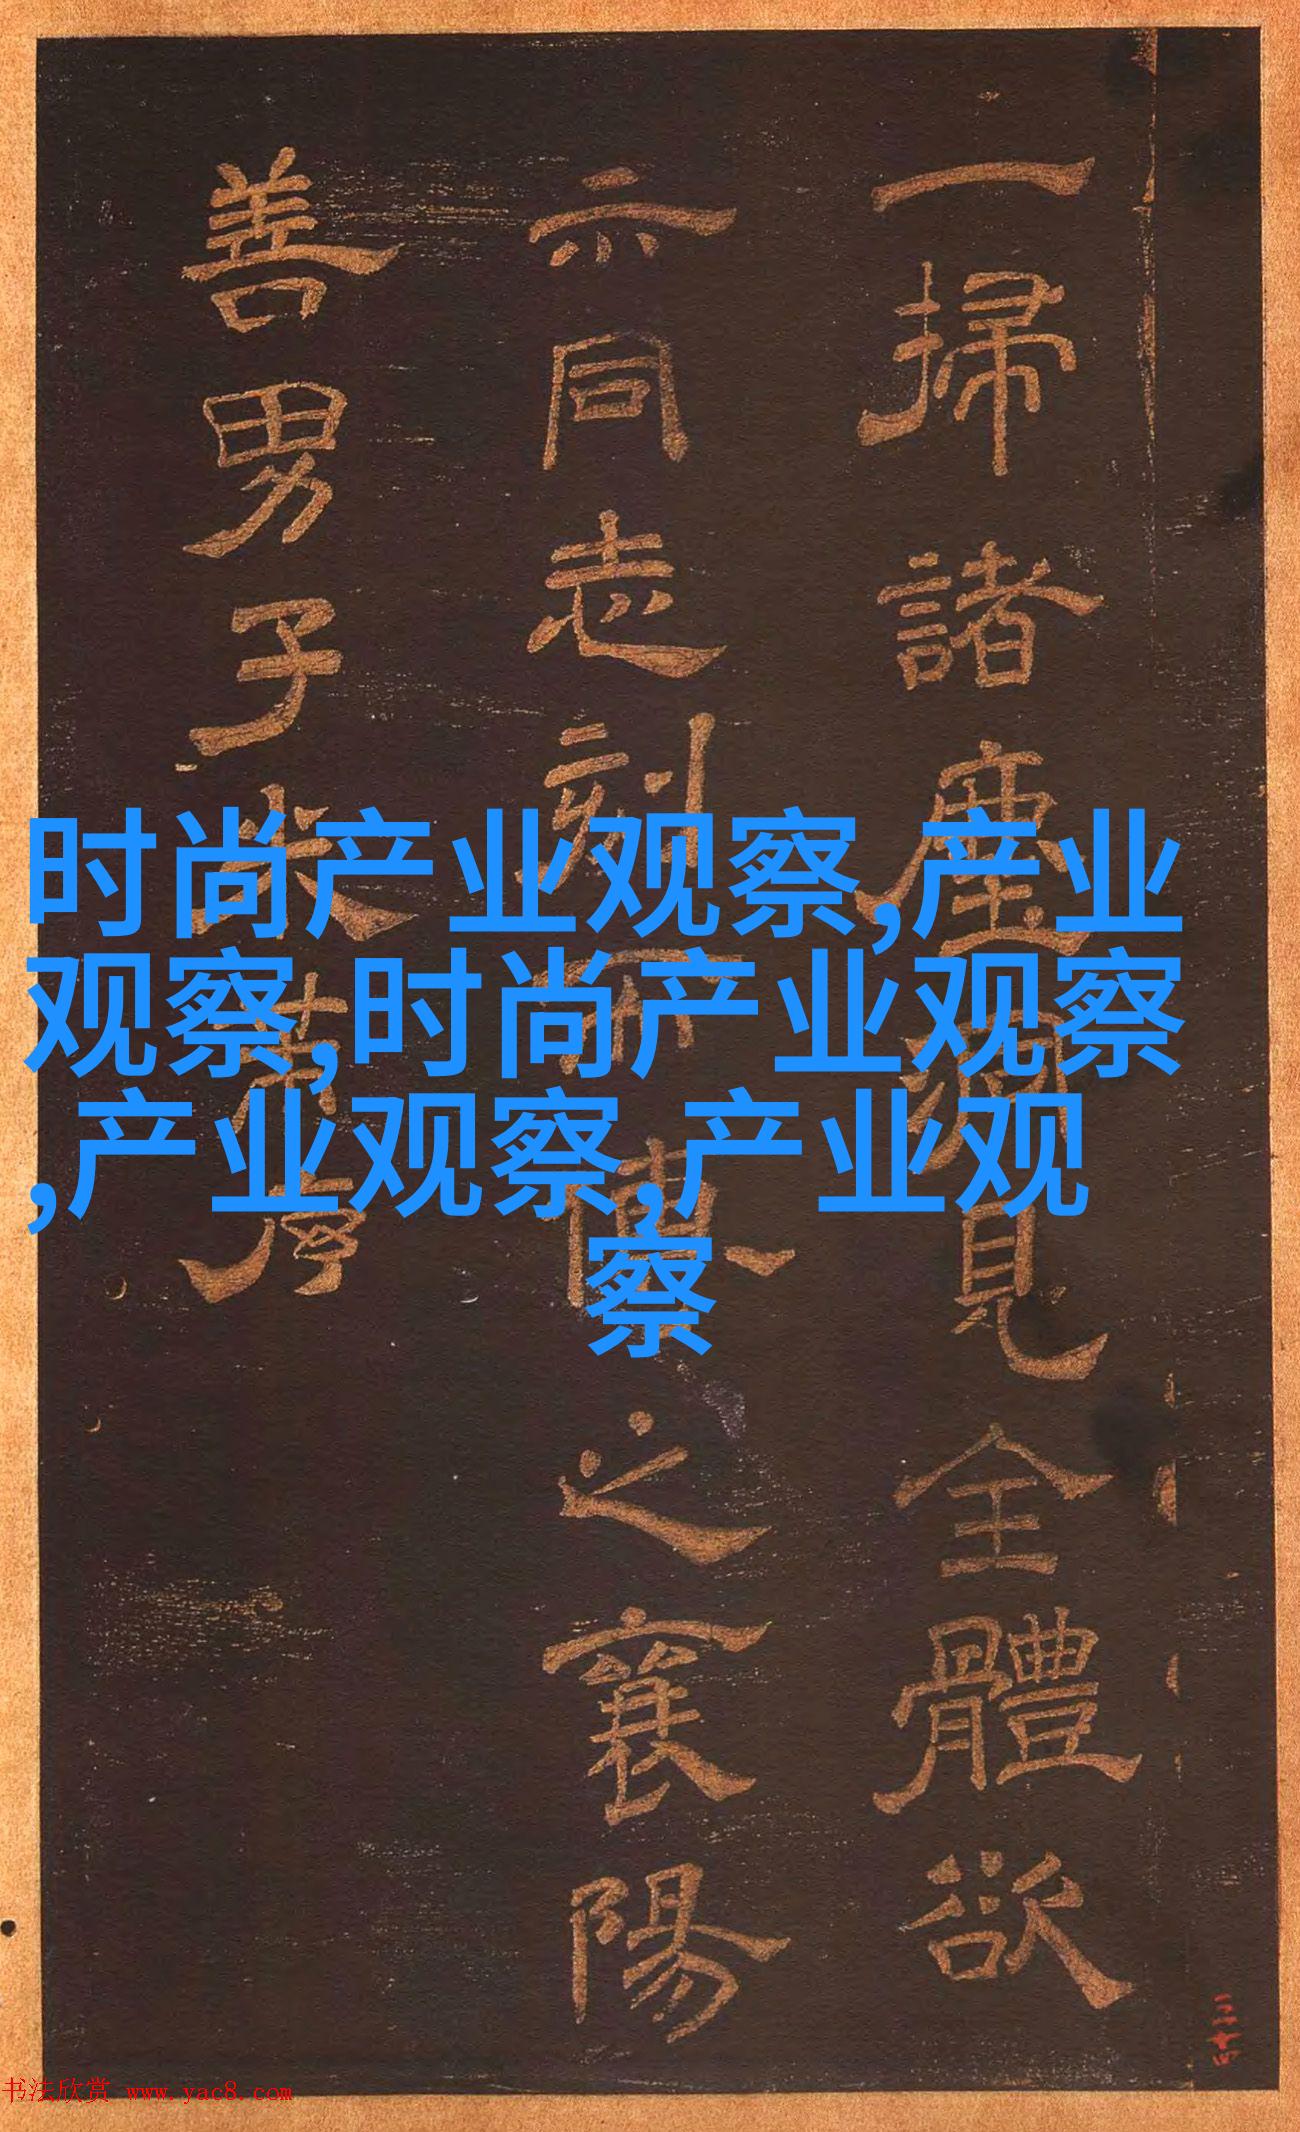 一掃諸塵獨見全體欲
示同志刻而傳之襄陽
善男子米芾書
时尚产业观察,产业
观察,时尚产业观察
,产业观察,产业观
察
三十四
书法欣赏 www.yac8.com